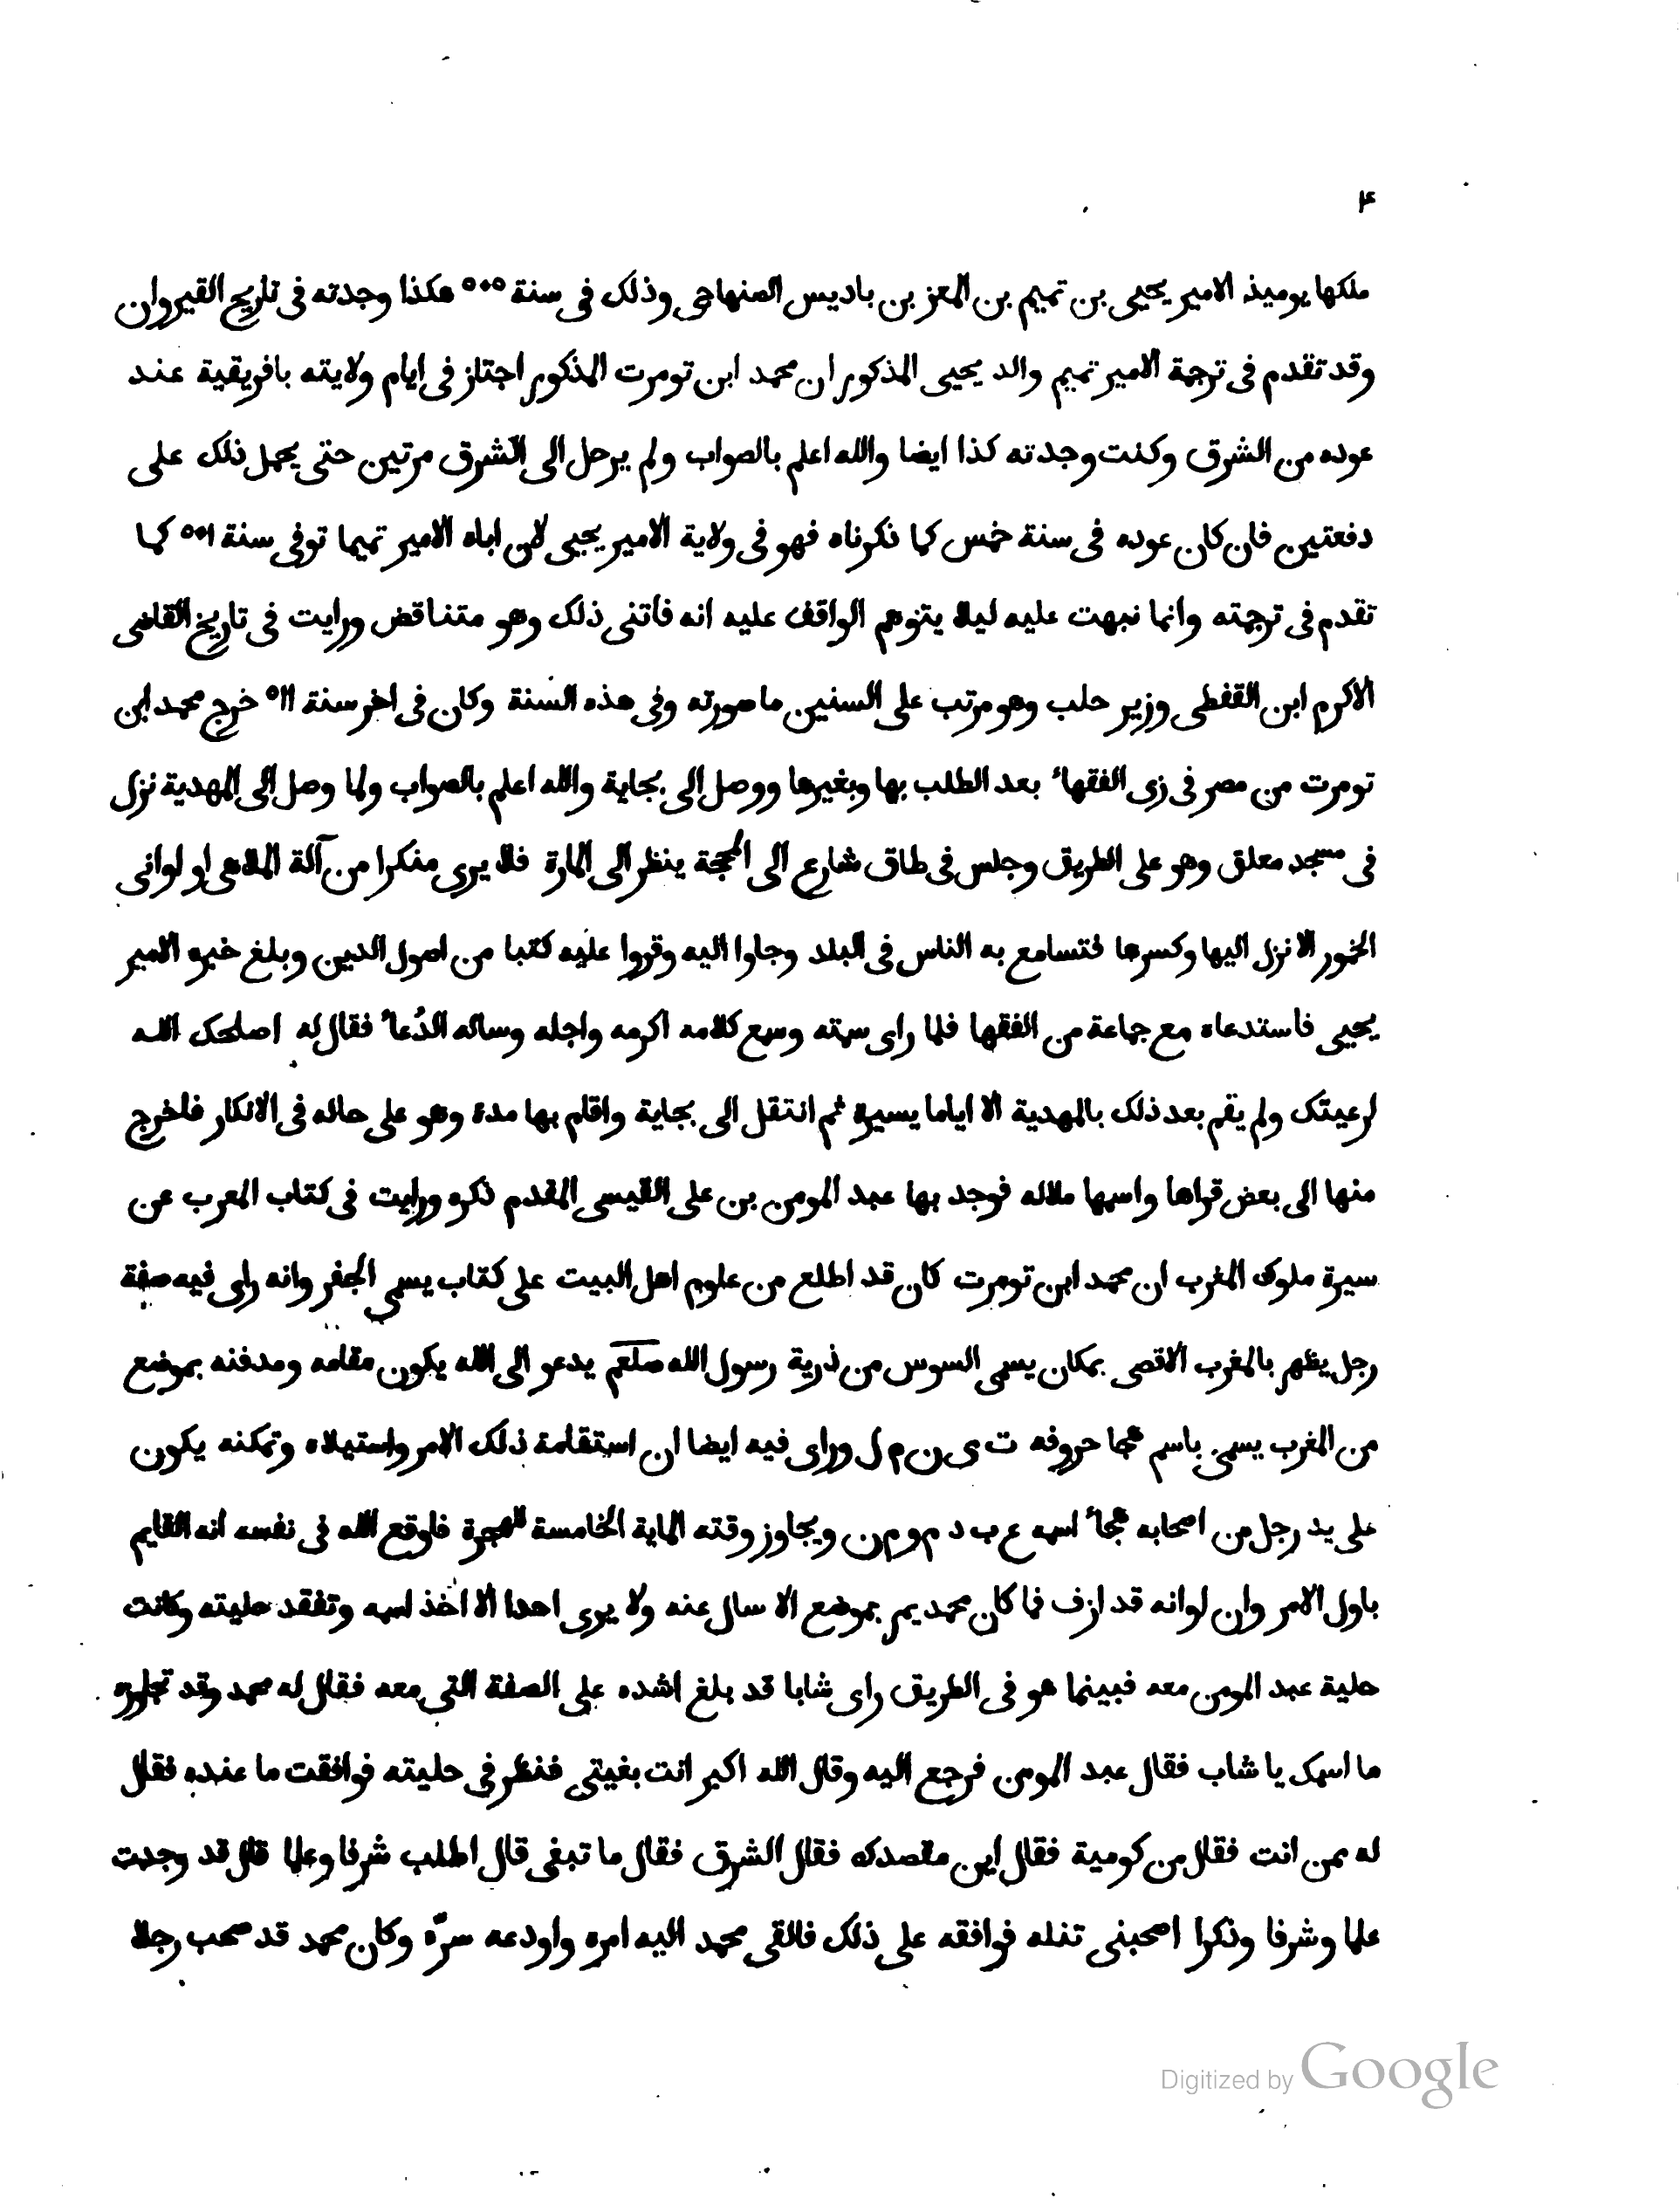 ۴
ملكها يوميذ الامير يحيى بن تميم بن المعز بن باديس الصنهاجى وذلك فى سنة ٥٠٥ هكذا وجدته فى تاريخ القيروان
وقد تقدم فى ترجمة الامير تميم والد يحيى المذكور ان محمد ابن تومرت المذكور اجتاز فى ايام ولايته بافريقية عند
عوده من الشرق وكنت وجدته كذا ايضا والله اعلم بالصواب ولم يرحل الى الشرق مرتين حتى يحمل ذلك على
دفعتين فان كان عوده فى سنة خمس كما ذكرناه فهو فى ولاية الامير يحيى لان اباه الامير تميما توفى سنة ٥٠١ كما
تقدم فى ترجمته وانما نبهت عليه ليلا يتوهم الواقف عليه انه فاتنى ذلك وهو متناقض ورايت فى تاريخ القاضى
الاكرم ابن القفطى وزير حلب وهو مرتب على السنين ما صورته وفى هذه السنة وكان فى اخر سنة ٥١١ خرج محمد ابن
تومرت من مصر فى زى الفقهاء بعد الطلب بها وبغيرها ووصل الى بجاية والله اعلم بالصواب ولما وصل الى المهدية نزل
فى مسجد معلق وهو على الطريق وجلس فى طاق شارع الى المحجة ينظر الى المارة فلا يرى منكرا من آلة الملاهى او لوانى
الخمور الا نزل اليها وكسرها فتسامع به الناس فى البلد وجاوا اليه وقروا عليه كتبا من اصول الدين وبلغ خبره الامير
يحيى فاستدعاه مع جماعة من الفقها فلما راى سمته وسمع كلامه اكرمه واجله وساله الدُعاء فقال له اصلحك الله
لرعيتك ولم يقم بعد ذلك بالمهدية الا اياما يسيرة ثم انتقل الى بجاية واقام بها مدة وهو على حاله فى الانكار فاخرج
منها الى بعض قراها واسمها ملاله فوجد بها عبد المومن بن على القيسى المقدم ذكره ورايت فى كتاب المعرب عن
سيرة ملوك المغرب ان محمد ابن تومرت كان قد اطلع من علوم اهل البيت على كتاب يسمى الجفر وانه راى فيه صفة
رجل يظهر بالمغرب الاقصى بمكان يسمى السوس من ذرية رسول الله صلعم يدعو الى الله يكون مقامه ومدفنه بموضع
من المغرب يسمى باسم هجا حروفه ت ى ن م ل وراى فيه ايضا ان استقامة ذلك الامر واستيلاه وتمكنه يكون
على يد رجل من اصحابه هجاء اسمه ع ب د م و م ن ويجاوز وقته الماية الخامسة للهجرة فاوقع الله فى نفسه انه القايم
باول الامر وان لوانه قد ازف فما كان محمد يمر بموضع الا سال عنه ولا يرى احدا الا اخذ اسمه وتفقد حليته وكانت
حلية عبد المومن معه فبينما هو فى الطريق راى شابا قد بلغ اشده على الصفة التى معه فقال له محمد وقد تجاوزه
ما اسمك يا شاب فقال عبد المومن فرجع اليه وقال الله اكبر انت بغيتى فنظر فى حليته فوافقت ما عنده فقال
له ممن انت فقال من كومية فقال اين مقصدك فقال الشرق فقال ما تبغى قال اطلب شرفا وعلما قال قد وجدت
علما وشرفا وذكرا اصحبنى تنله فوافقه على ذلك فالقى محمد اليه امره واودعه سرّه وكان محمد قد صحب رجلا
Digitized by Google